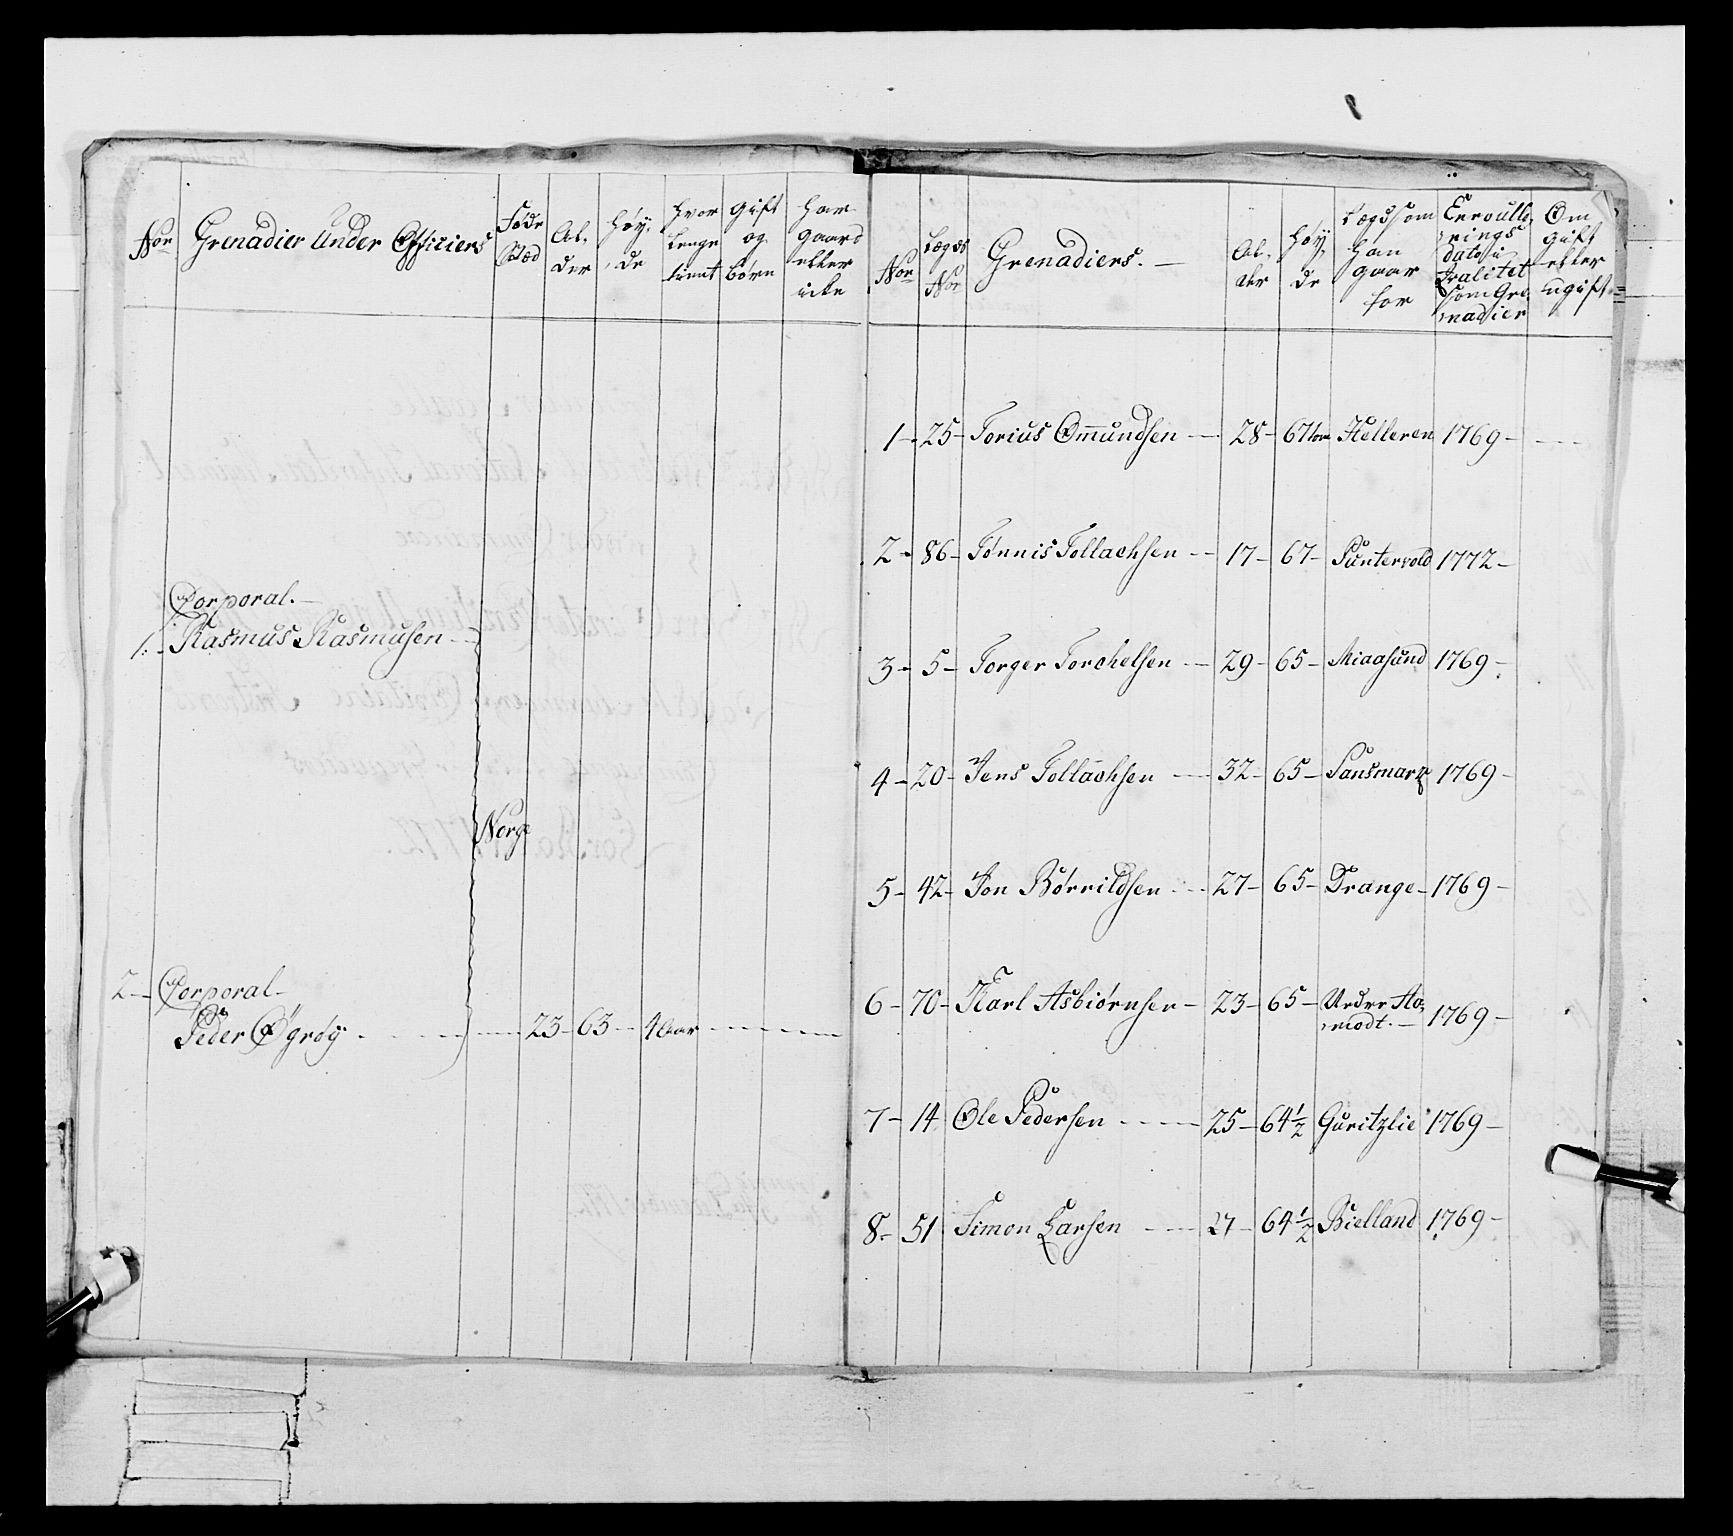 No=
Grenadier Under Officiers
Føde Stæd
Al,
der
Høy,
de
Hvor
lenge
tient
Gift
og
børn
Har
gaard
eller
icke
Corporal.—
1. Rasmus Rasmusen
Norge
2— Corporal—
Peder Øgrøy 23— 63— 4 Aar
No=
Lægds
No=
Grenadiers.—
Al,
der
Høy,
de
Lægd som
Han
gaar
for
Enroulle,
rings
dato i
qvalitet
som Gre,
nadier
Om
gift
eller
ugift
1—25— Torius Omundsen — 28— 67 Helleren 1769—
2—86— Tønnis Tollachsen — 17—67— Puntervold 1772—
3—5— Torger Torchelsen — 29—65— Miaasund 1769—
4—20— Jens Tollachsen — 32—65— Sansmark 1769—
5—42— Jon Børrildsen — 27—65— Drange—1769—
6—70— Karl Asbiørnsen— 23—65— Urdrr Aa,
modt.— 1769—
7—14 Ole Pedersen — 25—64½ Guritzlie 1769—
8—51 Simon Larsen — 27—64½ Bielland 1769—